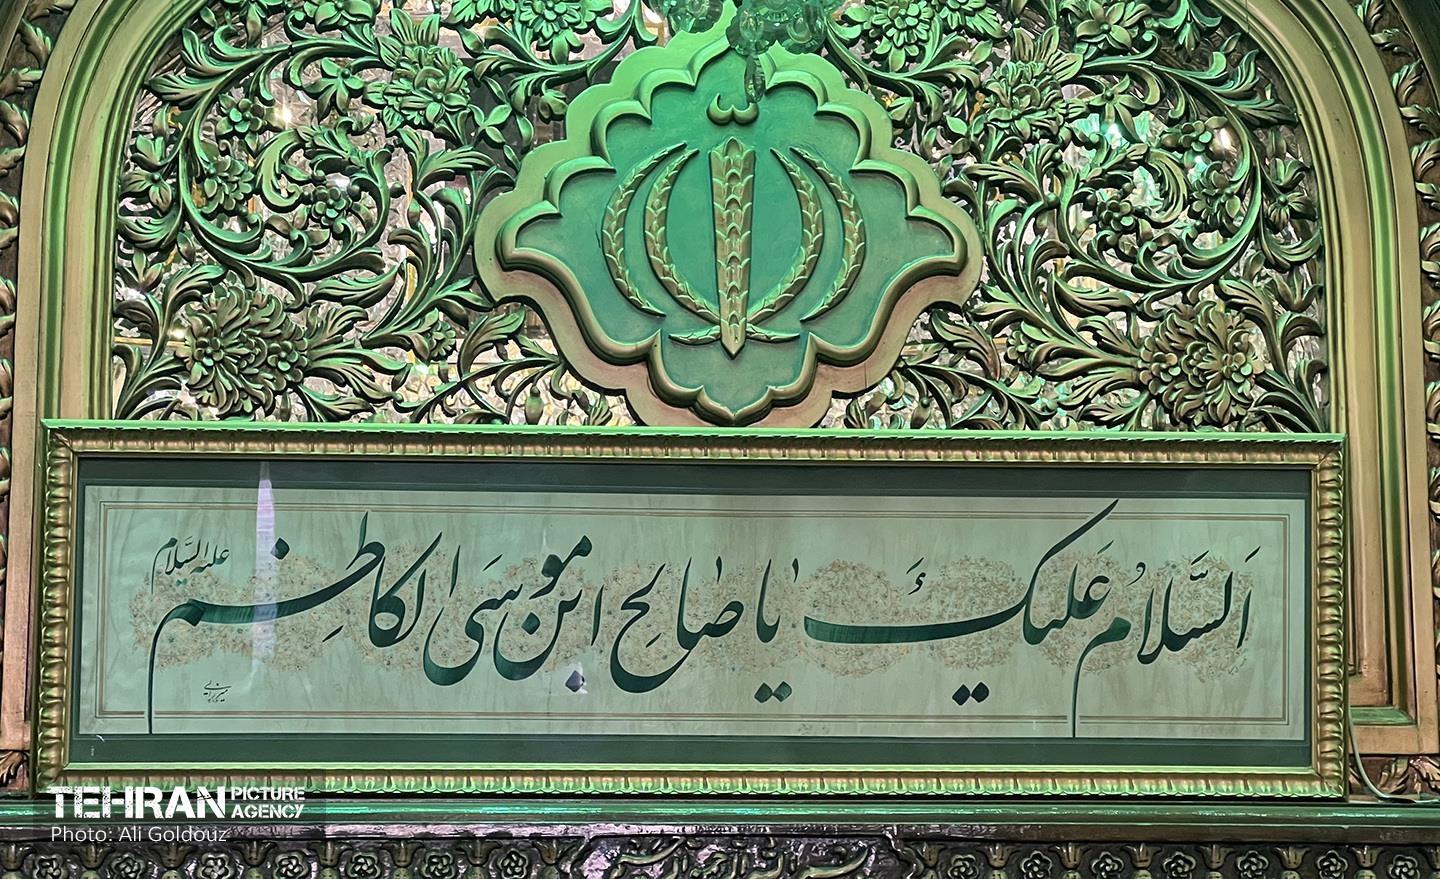 اَلسَّلامُ عَلیکَ یا صالِحِ ابن موسَی الکاظِم
علیه السَّلام
TEHRAN PICTURE AGENCY
Photo: Ali Goldouz